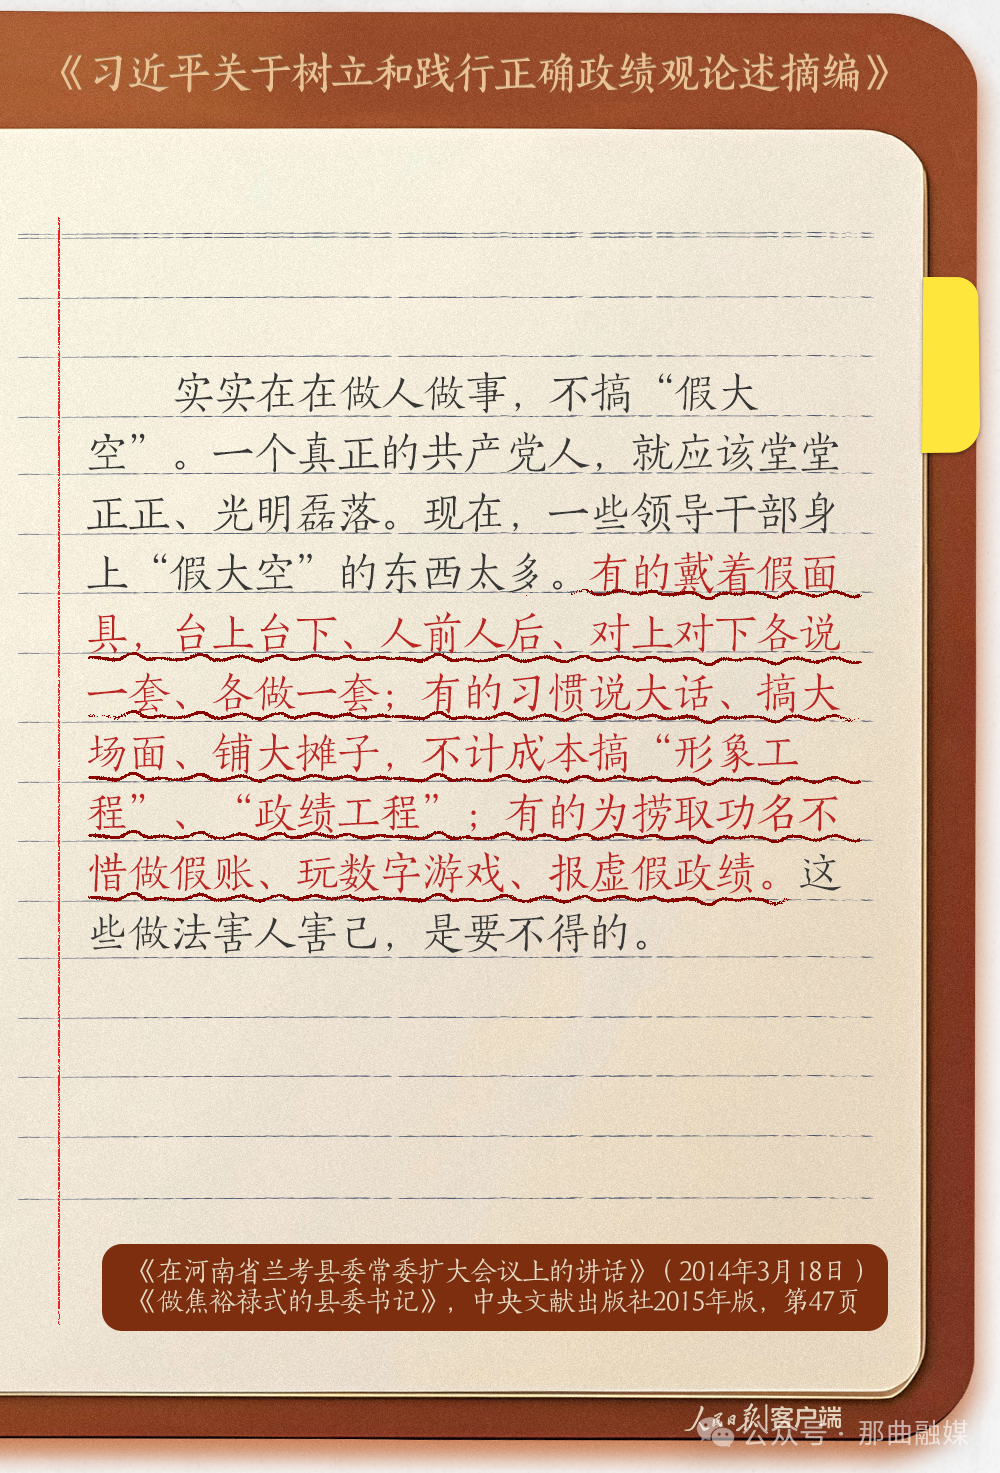 《习近平关于树立和践行正确政绩观论述摘编》
实实在在做人做事，不搞“假大
空”。一个真正的共产党人，就应该堂堂
正正、光明磊落。现在，一些领导干部身
上“假大空”的东西太多。有的戴着假面
具，台上台下、人前人后、对上对下各说
一套、各做一套；有的习惯说大话、搞大
场面、铺大摊子，不计成本搞“形象工
程”、“政绩工程”；有的为捞取功名不
惜做假账、玩数字游戏、报虚假政绩。这
些做法害人害己，是要不得的。
《在河南省兰考县委常委扩大会议上的讲话》（2014年3月18日）
《做焦裕禄式的县委书记》，中央文献出版社2015年版，第47页
人民日报 客户端
公众号·那曲融媒